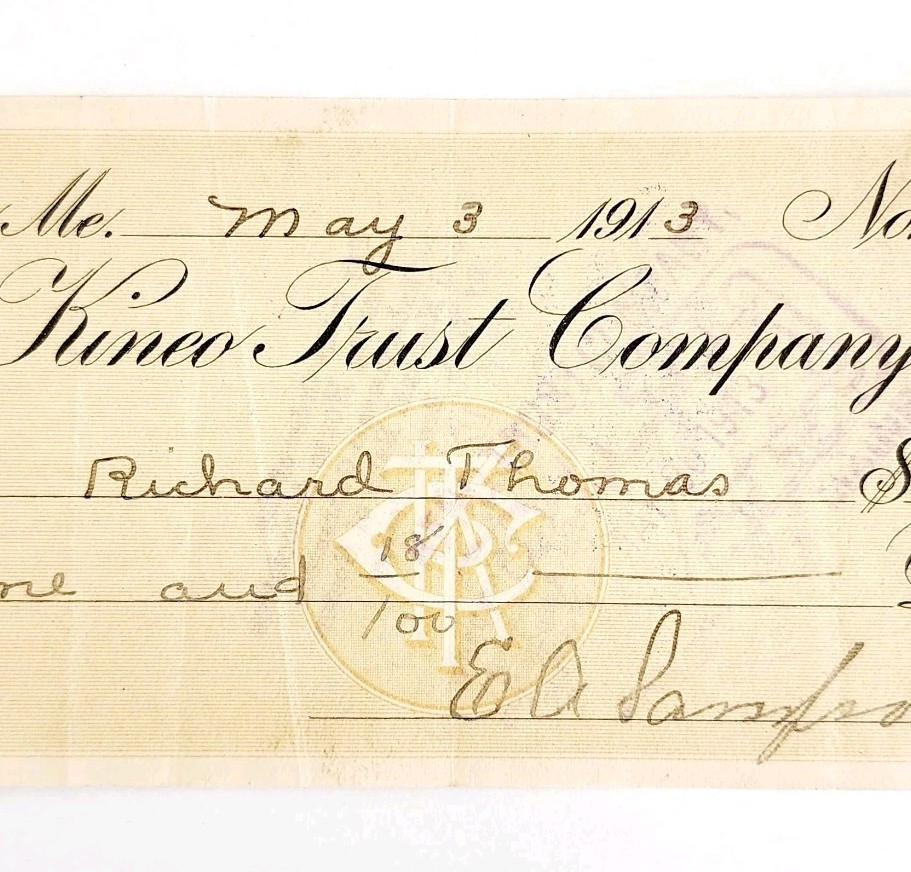 Me. May 3 1913 No
Kineo Trust Company
Richard Thomas $
and 18/100
E A Samps